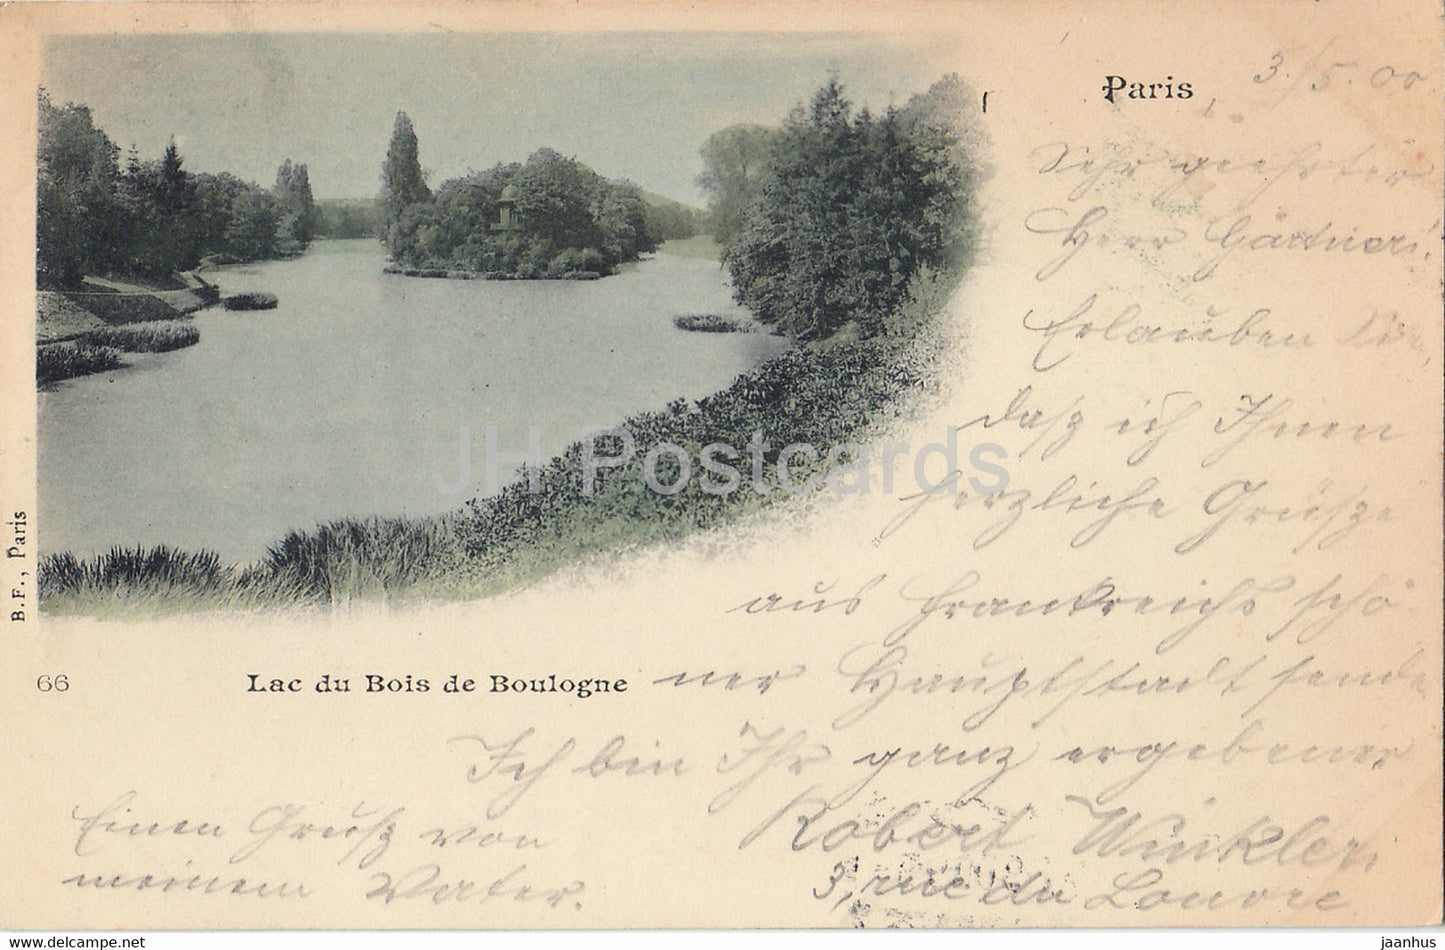 Paris, 3./5.00.
Sehr geehrter
Herr Gärtner!
Erlauben Sie,
daß ich Ihnen
herzliche Grüße
aus Frankreichs schö-
ner Hauptstadt sende
Ich bin Ihr ganz ergebener
Robert Winkler,
3, rue du Louvre
Einen Gruß von
meinem Vater.
66
Lac du Bois de Boulogne
B.F., Paris
JH Postcards
jaanhus www.delcampe.net